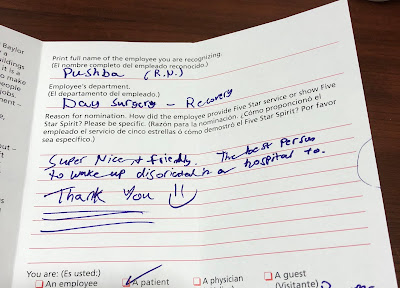 Baylor
Print full name of the employee you are recognizing.
(El nombre completo del empleado reconocido.)
Pushba (R.N.)
Employee's department.
(El departamento del empleado.)
Day Surgery - Recovery
Reason for nomination. How did the employee provide Five Star service or show Five
Star Spirit? Please be specific. (Razón para la nominación. ¿Cómo proporcionó el
empleado el servicio de cinco estrellas ó cómo demostró el Five Star Spirit? Por favor
sea específico.)
Super Nice & friendly. The best person
to wake up disoriented in a hospital to.
Thank you
You are: (Es usted:)
An employee
A patient
A physician
A guest
(Visitante)